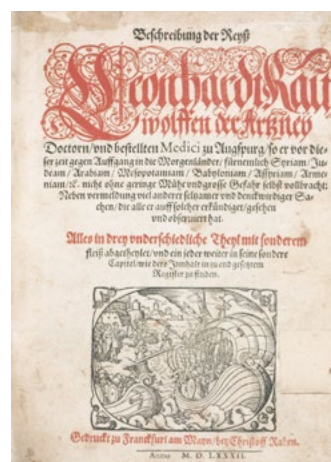 Beschreibung der Reyß
Leonhardi Rau
wolffen der Artzney
Doctorn / vnd bestellten Medici zu Augspurg / so er vor die-
ser zeit gegen Auffgang in die Morgenländer / fürnemlich Syriam / Ju-
deam / Arabiam / Mesopotamiam / Babyloniam / Assyriam / Arme-
niam / ꝛc. nicht ohne geringe Mühe vnd grosse Gefahr selbst vollbracht:
Neben vermeldung viel anderer seltzamer vnd denckwirdiger Sa-
chen / die alle er auff solcher erkündiget / gesehen
vnd obseruiert hat.
Alles in drey vnderschiedliche Theyl mit sonderem
fleiß abgetheylet / vnd ein jeder weiter in seine sondere
Capitel / wie dero Jnnhalt in zu end gesetztem
Register zu finden.
Gedruckt zu Franckfurt am Mayn / bey Christoff Raben.
Anno M. D. LXXXII.